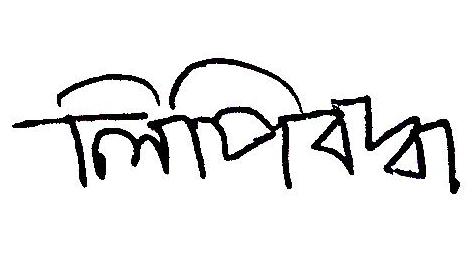 লিপিবদ্ধ